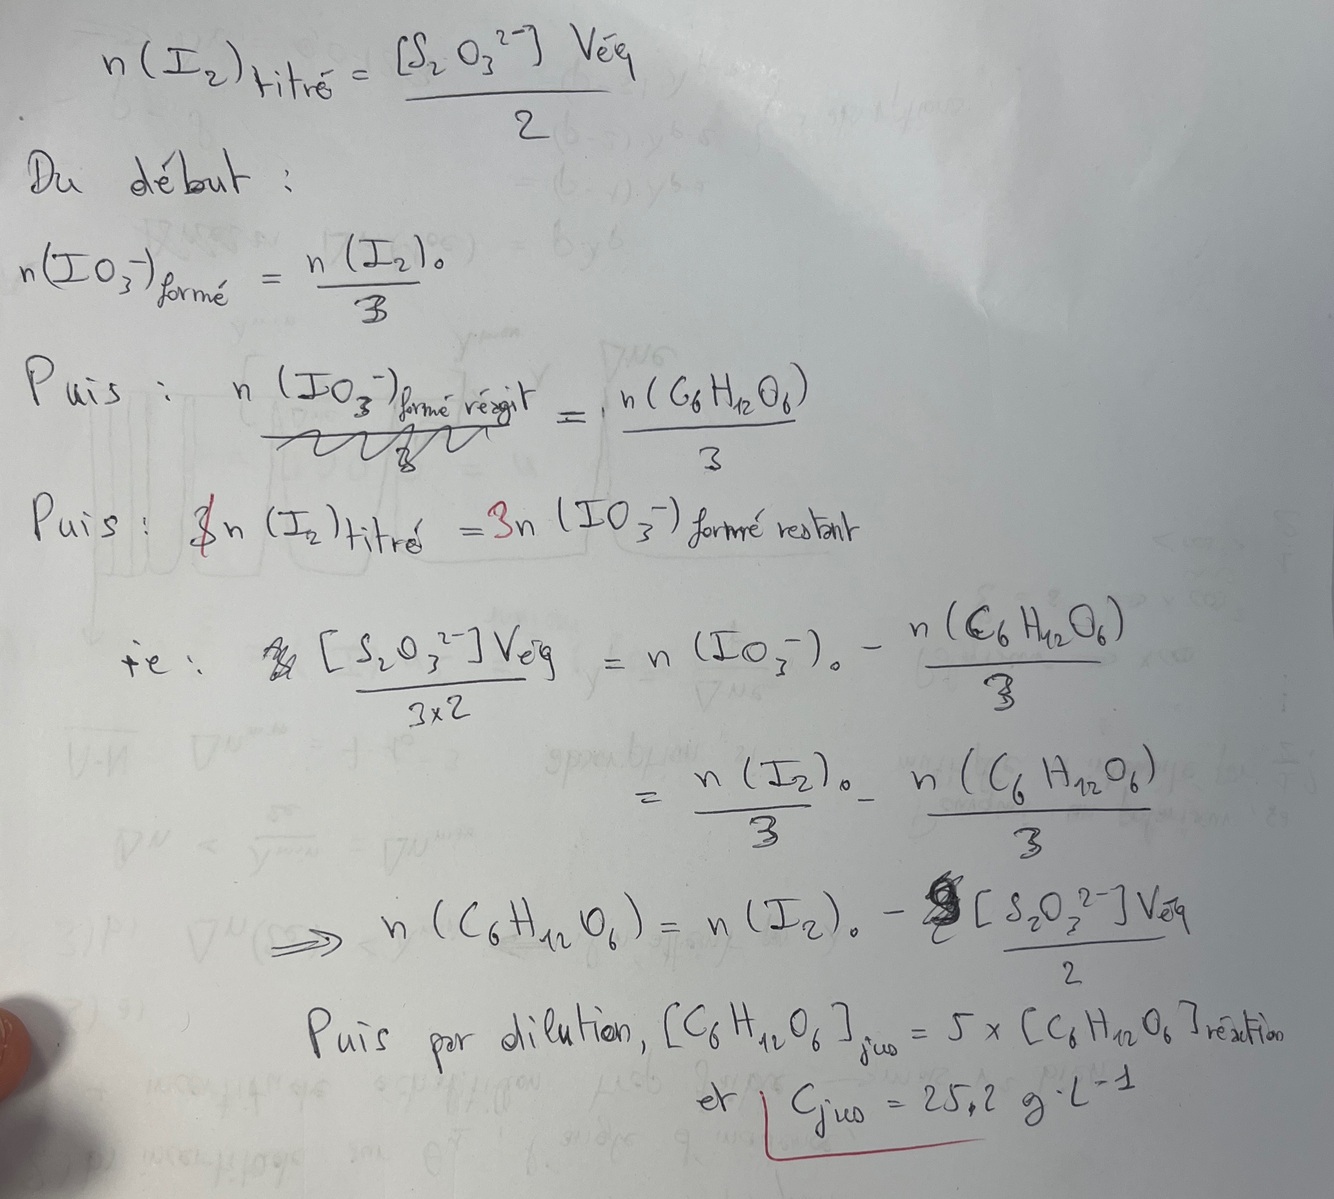 n(I₂)titré = [S₂O₃²⁻] Véq / 2
Du début :
n(IO₃⁻)formé = n(I₂)₀ / 3
Puis : n(IO₃⁻)formé réagit = n(C₆H₁₂O₆) / 3
Puis : n(I₂)titré = 3n(IO₃⁻)formé restant
ie : [S₂O₃²⁻]Véq / 3x2 = n(IO₃⁻)₀ - n(C₆H₁₂O₆) / 3
= n(I₂)₀ / 3 - n(C₆H₁₂O₆) / 3
⟹ n(C₆H₁₂O₆) = n(I₂)₀ - [S₂O₃²⁻]Véq / 2
Puis par dilution, [C₆H₁₂O₆]jus = 5 x [C₆H₁₂O₆]réaction
et Cjus = 25,2 g·L⁻¹